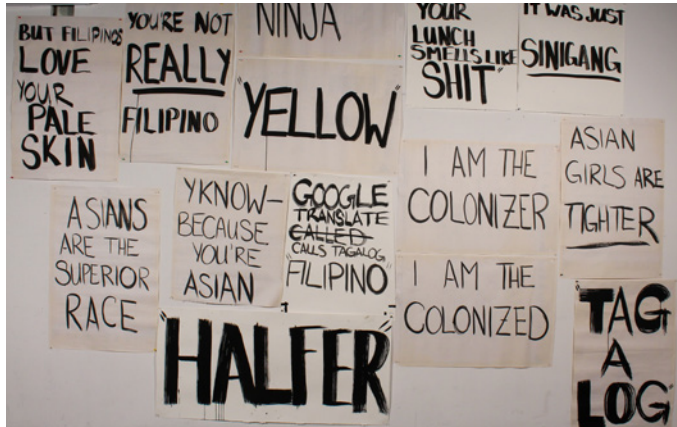 BUT FILIPINOS
LOVE
YOUR
PALE
SKIN
YOU'RE NOT
REALLY
FILIPINO
NINJA
"YELLOW"
YOUR
LUNCH
SMELLS LIKE
SHIT"
IT WAS JUST
SINIGANG
ASIANS
ARE THE
SUPERIOR
RACE
YKNOW—
BECAUSE
YOU'RE
ASIAN
GOOGLE
TRANSLATE
CALLED
CALLS TAGALOG
"FILIPINO"
I AM THE
COLONIZER
I AM THE
COLONIZED
ASIAN
GIRLS ARE
TIGHTER
"HALFER"
"TAG
A
LOG"